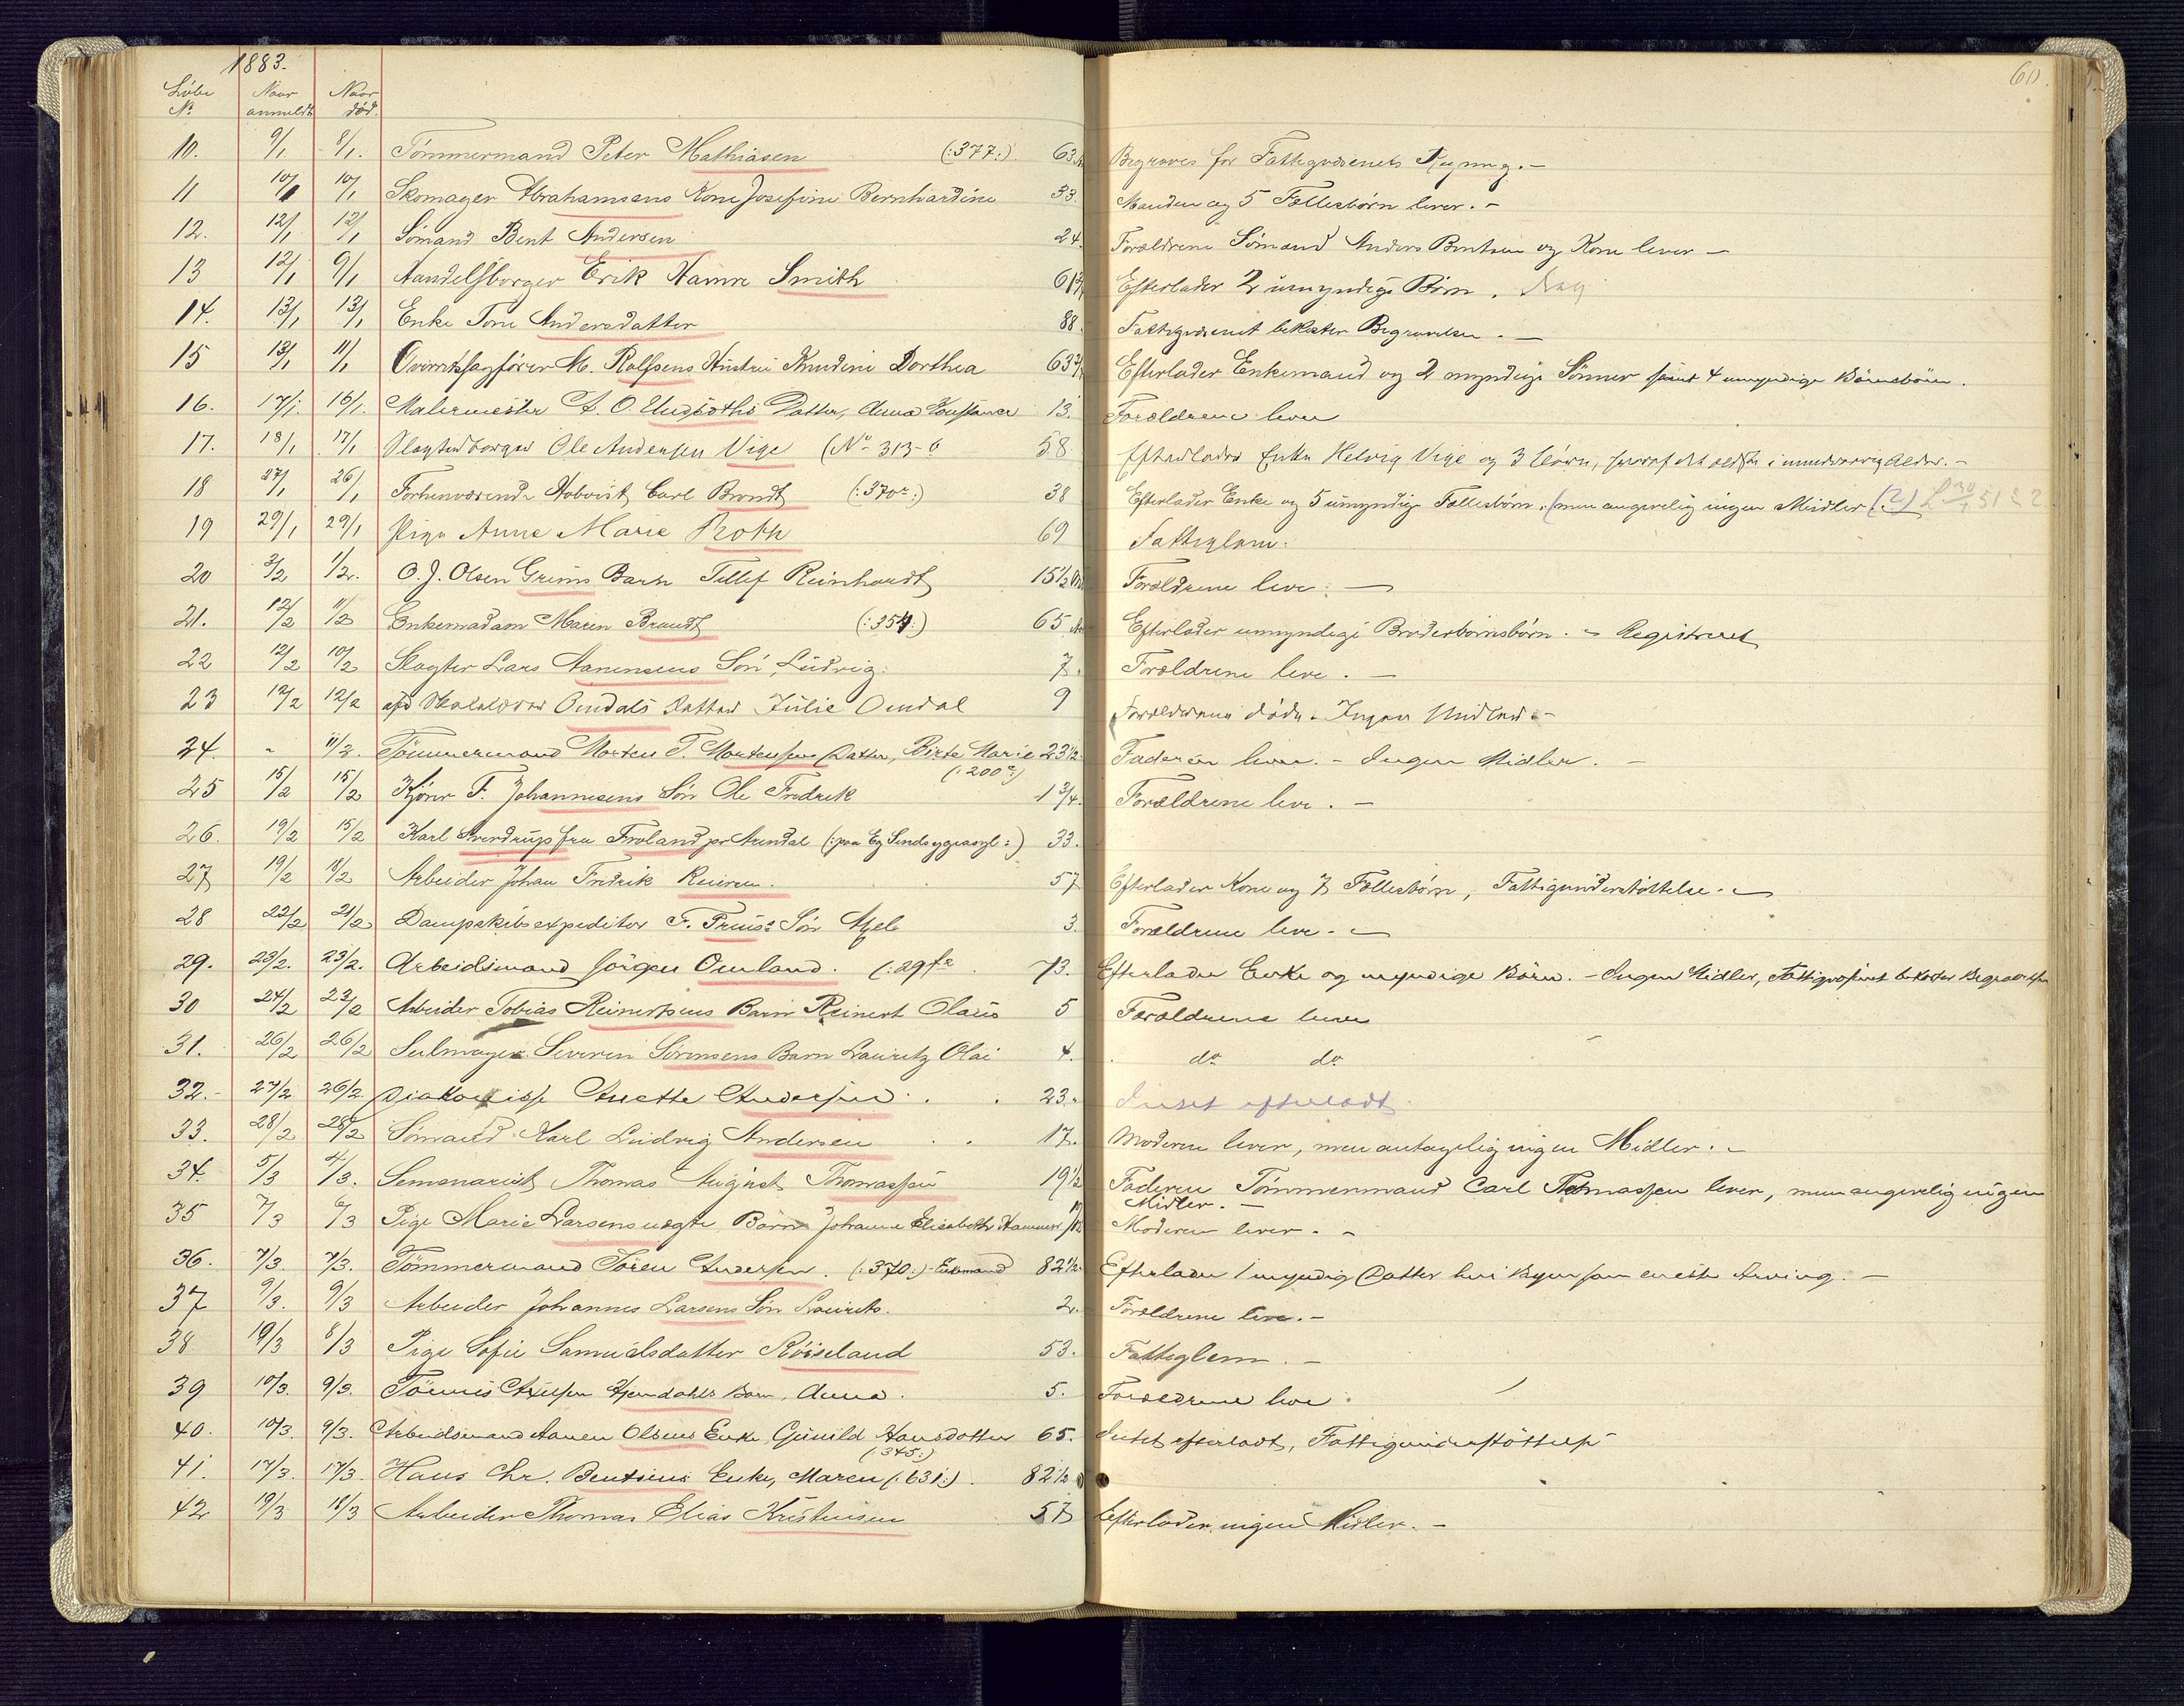 1883.
60.
Løbe No. Naar anmeldt Naar død.
10. 9/1 8/1. Tømmermand Peter Mathiasen (:377:). 63 Begraves for Fattigvæsenets Regning. -
11 10/1 10/1 Skomager Abrahamsens Kone Josefine Bernhardine 33. Manden og 5 Fællesbørn lever. -
12. 12/1 12/1 Sømand Bent Andersen 24. Forældrene Sømand Anders Bentsen og Kone lever -
13 12/1 9/1 Handelsborger Erik Hamre Smith Efterlader 2 umyndige Børn.
14. 13/1 13/1 Enke Tone Andersdatter 88. Fattigvæsenet bekoster Begravelsen. -
15 13/1 11/1 Overretssagfører M. Rolfsens Hustru Knudine Dorthea Efterlader Enkemand og 2 myndige Sønner samt 4 umyndige Børnebørn.
16. 17/1. 16/1. Malermester A. O. Datter, Anna Konstance 13. Forældrene lever
17. 18/1 17/1 Slagterborger Ole Andersen Vige (No 313 58 Efterlader Enke Helvig Vige og 3 Børn, hvoraf det ældste i mindreaarig Alder. -
18 27/1 26/1 Forhenværende Carl Brandt (:370a:) 38 Efterlader Enke og 5 umyndige Fællesbørn, (men angivelig ingen Midler (?)
19 29/1 29/1 Pige Anne Marie Roth 69 Fattiglem.
20 3/2 1/2. O. J. Olsen Grims Barn Tellef Reinhardt 15 1/2 Forældrene leve. -
21. 12/2 11/2 Enkemadam Maren Brandt (:354:) 65 Efterlader umyndige Broderbørnsbørn. - Registreret
22 12/2 10/2 Slagter Lars Aanensens Søn, Ludvig. 7. Forældrene leve. -
23 12/2 12/2 Omdals Datter Julie Omdal 9 Forældrene døde. Ingen Midler. -
24. " 11/2. Tømmermand Morten T. Mortensens Datter, Birte Marie 23 1/2 Faderen lever. - Ingen Midler. -
(:200a:)
25 15/2 15/2 F. Johannesens Søn Ole Fredrik 1 3/4. Forældrene leve. -
26. 19/2 15/2 Karl Sverdrup fra Froland pr Arendal (:paa Eg Sindsygeasyl:) 33.
27 19/2 18/2 Arbeider Johan Fredrik Reiersen. 57 Efterlader Kone og 7 Fællesbørn, Fattigunderstøttelse. -
28 22/2 21/2 Dampskibsexpeditør F. Søn Axel 3. Forældrene leve. -
29. 23/2. 23/2. Arbeidsmand Jørgen Omland. (:29 73. Efterlader Enke og myndige Børn. - Ingen Midler, Fattigvæsenet bekoster Begravelsen
30 24/2 23/2 Arbeider Tobias Reinertsens Barn Reinert Olaus 5 Forældrene lever
31. 26/2 26/2 Seilmager Severin Sørensens Barn Lauritz Olai 4. do do
32. 27/2 26/2 Diakonisse Anette Andersen 23. Intet efterladt
33. 28/2 28/2 Sømand Karl Ludvig Andersen 17. Moderen lever, men antagelig ingen Midler. -
34. 5/3 4/3. Semenarist Thomas August Thomassen 19 1/2 Faderen Tømmermand Carl Tomassen lever, men angivelig ingen
Midler. -
35 7/3 6/3 Pige Marie Larsens uægte Barn Johanne Elisabeth Moderen lever. -
36. 7/3. 7/3. Tømmermand Søren Andersen. (:370:) - Enkemand 82 1/2 Efterlader 1 myndig Datter her i Byen som eneste Arving. -
37 9/3. 9/3 Arbeider Johannes Larsens Søn Laurits. 2. Forældrene leve. -
38 19/3 8/3 Pige Sofie Samuelsdatter Røiseland 53. Fattiglem. -
39 10/3. 9/3. Tønnes Barn, Anna. 5. Forældrene leve
40. 10/3. 9/3. Arbeidsmand Aanen Olsens Enke Gunild Hansdatter 65. Intet efterladt, Fattigunderstøttelse
(:345:)
41. 17/3. 17/3. Hans Chr. Bentsens Enke, Maren (:631:). 82 1/2
42 19/3 18/3 Arbeider Thomas Elias Kristensen 57 Efterlader ingen Midler. -